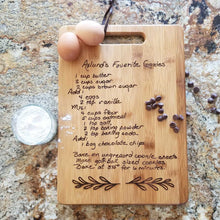 Favorite Cookies
1 cup butter
2 cups sugar
2 cups brown sugar
Add:
4 eggs
2 tsp vanilla
Mix:
4 cups flour
5 cups oatmeal
1 tsp salt
2 tsp baking powder
2 tsp baking soda
Add:
1 bag chocolate chips
Bake on ungreased cookie sheets
Make golf ball sized cookies
Bake at for minutes